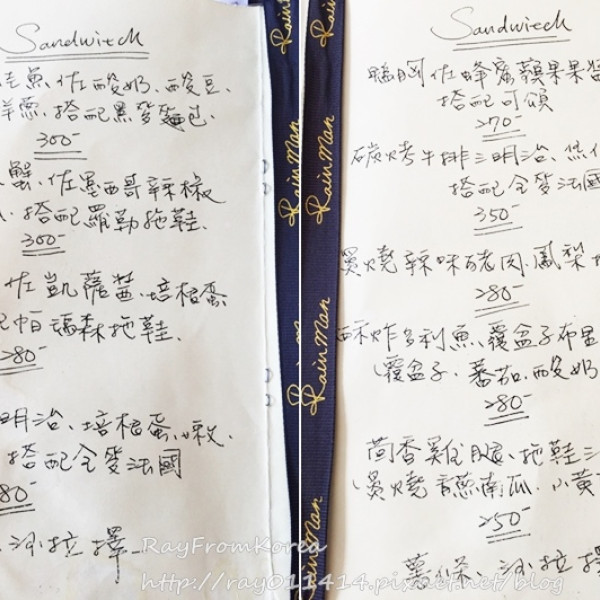 Sandwiech
鮭魚佐酸奶、酸豆、
洋蔥、搭配黑麥麵包.
300-
蟹、佐墨西哥辣椒
搭配羅勒拖鞋.
300-
佐凱薩醬、培根蛋
帕瑪森拖鞋.
280-
明治、培根蛋、
搭配全麥法國
80-
沙拉擇一
Rain Man
Rain Man
Rain Man
Rain Man
Rain Man
Rain Man
Sandwiech
鴨胸佐蜂蜜蘋果果醬
搭配可頌
270-
碳烤牛排三明治、焦
搭配全麥法國
350-
燒辣味豬肉、鳳梨
280-
酥炸多利魚、覆盆子布里
(覆盆子、蕃茄、酸奶
280-
茴香雞腿、拖鞋三
燒 南瓜、小黃
250-
薯條、沙拉擇
RayFromKorea
http://ray011414.pixnet.net/blog